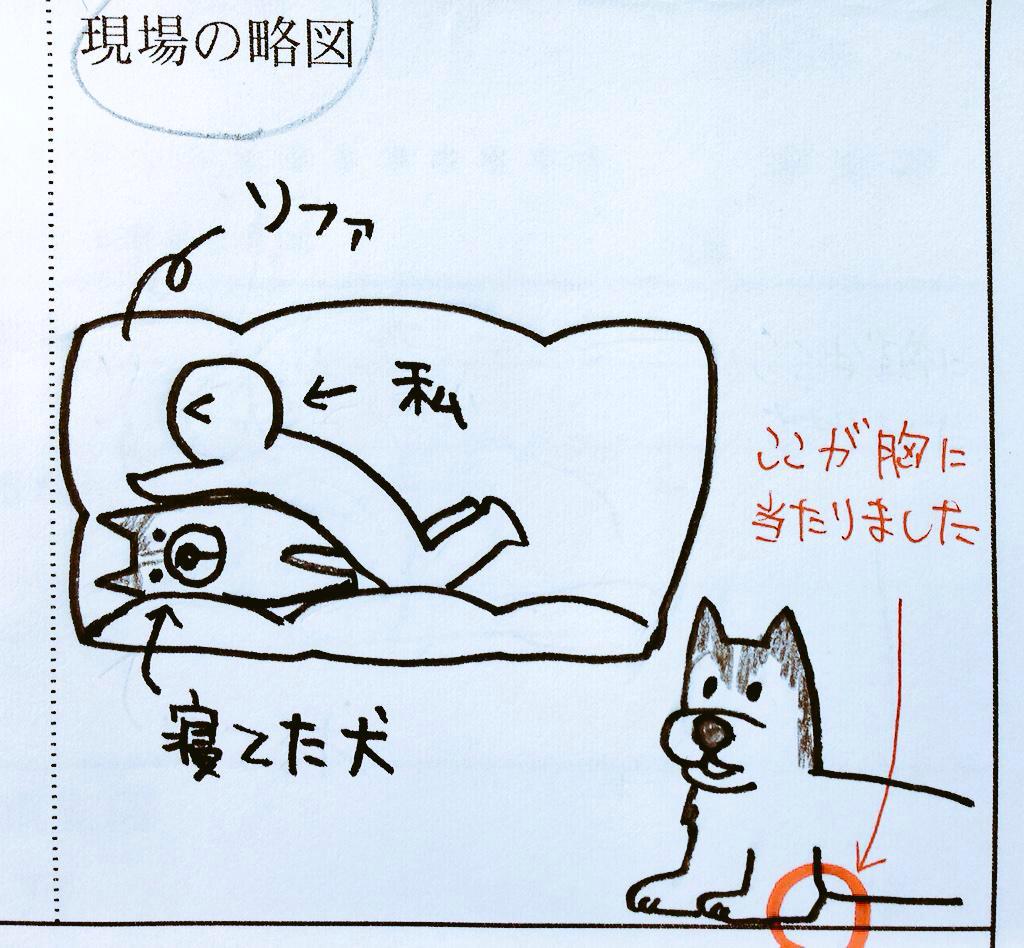 現場の略図
ソファ
← 私
ここが胸に
当たりました
寝てた犬